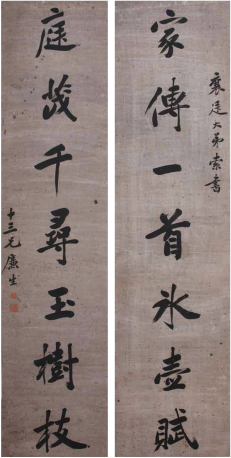 襄廷大弟索書
家傳一首氷壺賦
庭茂千尋玉樹枝
十三兄廉生